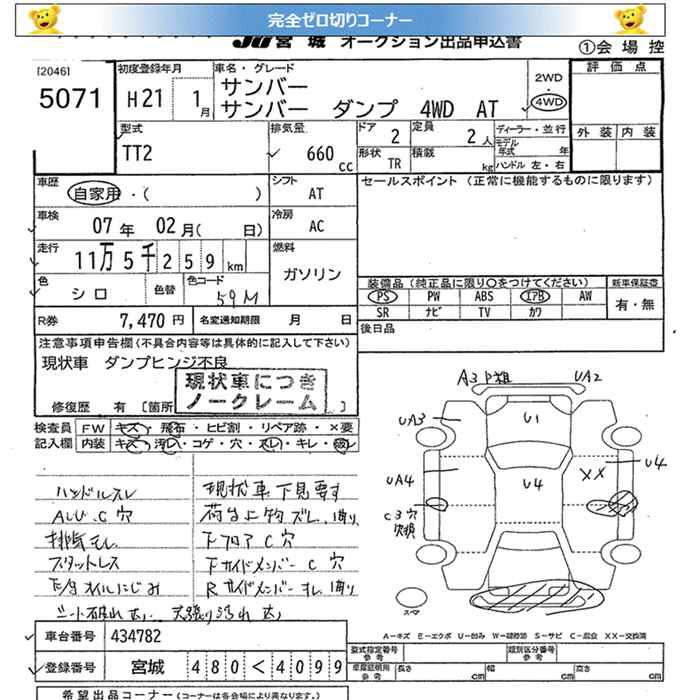 完全ゼロ切りコーナー
JU 宮城 オークション出品申込書
①会場控
[2046]
5071
初度登録年月
H21 1月
車名・グレード
サンバー
サンバー ダンプ 4WD AT
2WD
・
4WD
評価点
外装 内装
型式
TT2
排気量
660 cc
ドア 2
定員 2人
形状 TR
積載 kg
ディーラー・並行
モデル年式 年
ハンドル 左・右
車歴
自家用・( )
シフト
AT
セールスポイント (正常に機能するものに限ります)
車検
07年 02月( 日)
冷房
AC
走行
11万5千259km
燃料
ガソリン
色
シロ
色替
色コード
59M
装備品(純正品に限り○をつけてください)
新車保証書
PS PW ABS エアB AW
SR ナビ TV カワ
有・無
R券
7,470円
名変通知期限 月 日
後日品
注意事項申告欄(不具合内容等は具体的に記入して下さい)
現状車 ダンプヒンジ不良
現状車につき
ノークレーム
修復歴 有 [箇所
検査員記入欄
FW キズ・飛石・ヒビ割・リペア跡・×要
内装 キズ・汚レ・コゲ・穴・スレ・キレ・破レ
ハンドルスレ
ALU.C穴
排気モレ
スタットレス
下廻オイルにじみ
シート破れ大 天張り汚れ大
現状車下見要す
荷台上物ズレ、曲り
下フロアC穴
下サイドメンバーC穴
Rサイドメンバーズレ、曲り
A3 P錆
UA2
UA3
U1
UA4
U4
XX
U4
C3穴
スペア
XX
A-キズ E-エクボ U-凹み W-補修跡 S-サビ C-腐食 XX-交換済
車台番号
434782
登録番号
宮城 480 く 4099
型式指定番号
参考
類別区分番号
参考
車庫証明用
参考
長さ cm
幅 cm
高さ cm
希望出品コーナー (コーナーは各会場により異なります。)